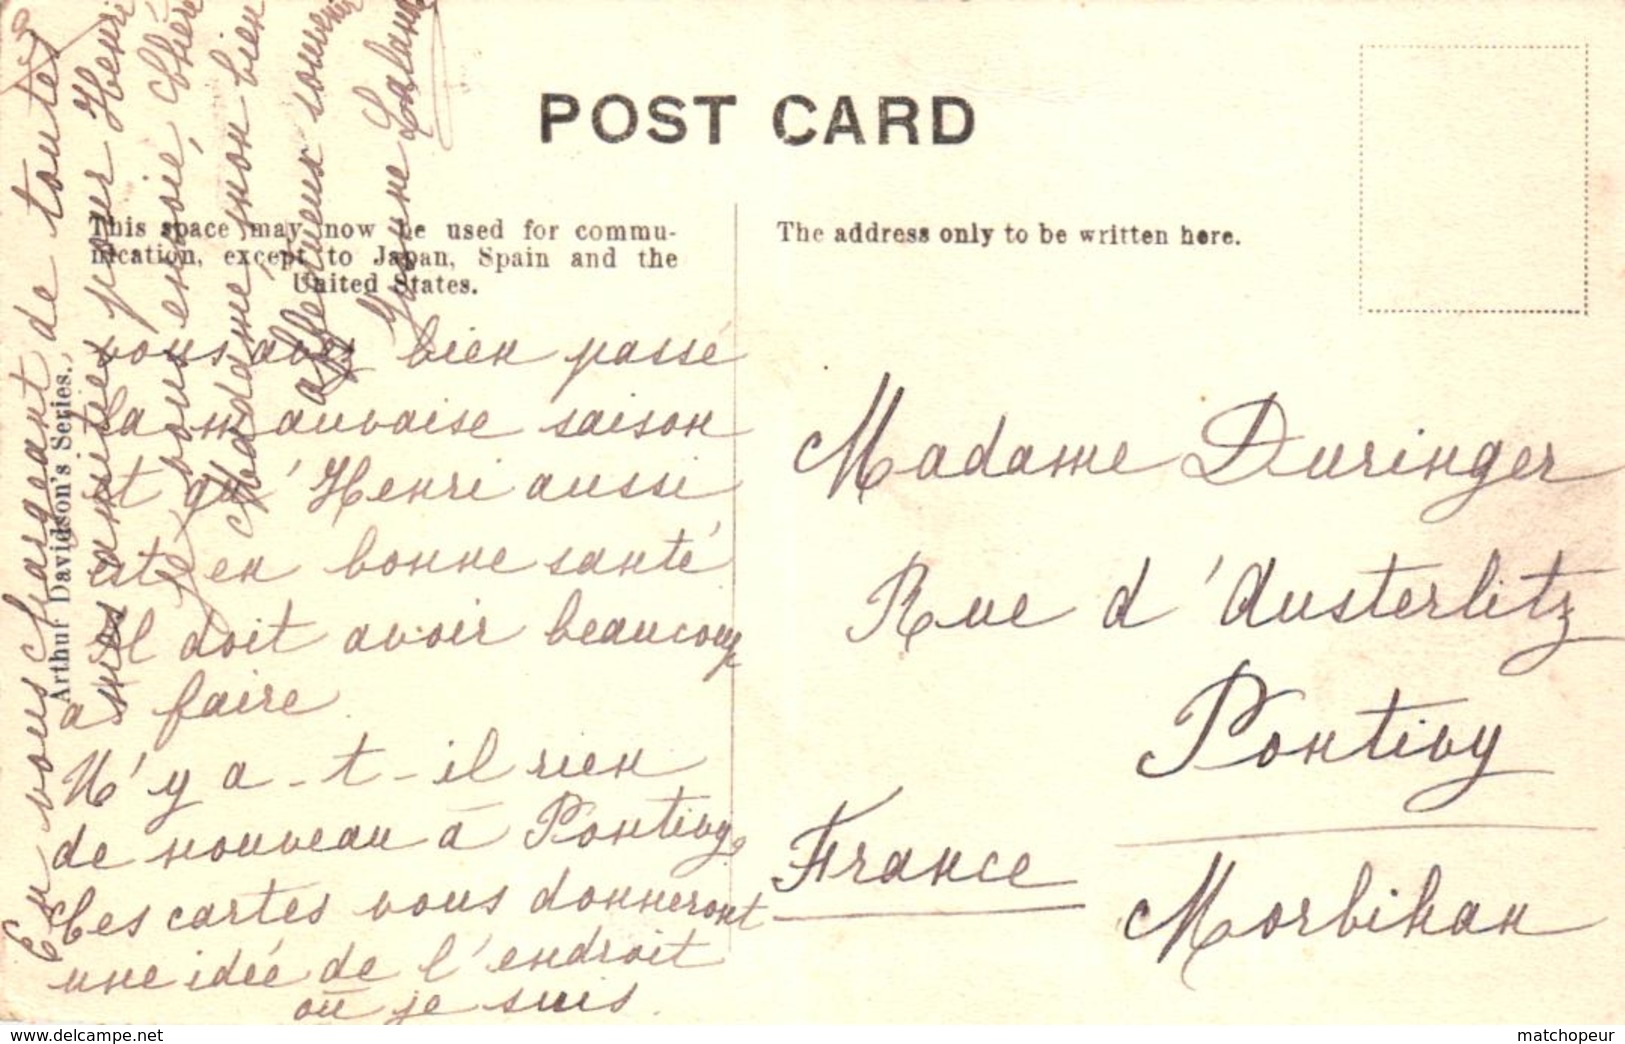 POST CARD
This space may now be used for commu-
nication, except to Japan, Spain and the
United States.
The address only to be written here.
Arthur Davidson's Series.
vous avez bien passé
la mauvaise saison
et qu' Henri aussi
est en bonne santé
Il doit avoir beaucoup
à faire
N'y a-t-il rien
de nouveau à Pontivy?
Ces cartes vous donneront
une idée de l'endroit
où je suis.
En vous chargeant de toutes
mes amitiés pour Henri
je vous envoie, Chère
Madame, mon bien
affectueux souvenir
Yvonne
Madame Duringer
Rue d'Austerlitz
Pontivy
France
Morbihan
https://www.delcampe.net
matchopeur